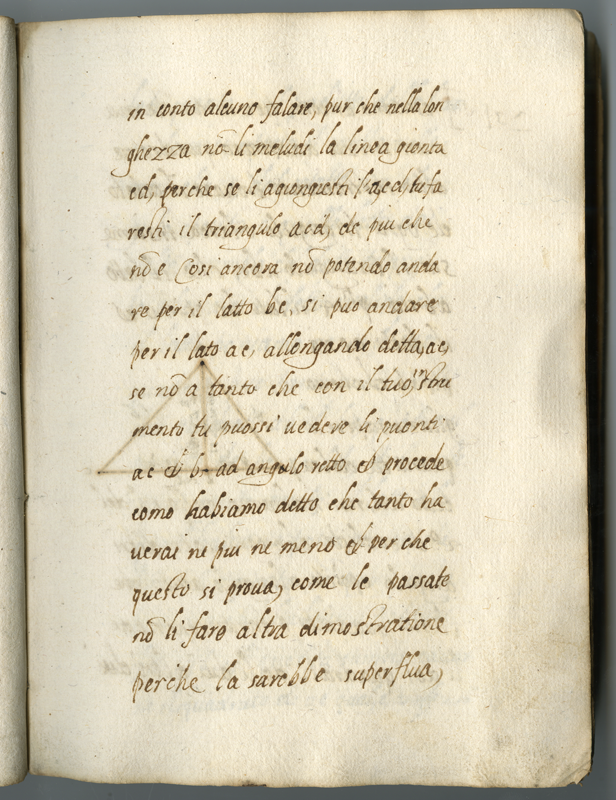 in conto alcuno falare, pur che nella lon
ghezza nō li meludi la linea gionta
cd, perche se li agiongiesti l'acd, tu fa
resti il triangulo acd, de piu che
nō e Cosi ancora nō potendo anda
re per il latto bc, si puo andare
per il lato ac, allongando detta, ac,
se nō a tanto che con il tuo, instru
mento tu puossi vedere li puonti
ac & b. ad angulo retto & procede
como habiamo detto che tanto ha
verai ne piu ne meno & per che
questo si prova, come le passate
nō li faro altra dimostratione
perche la sarebbe superflua,